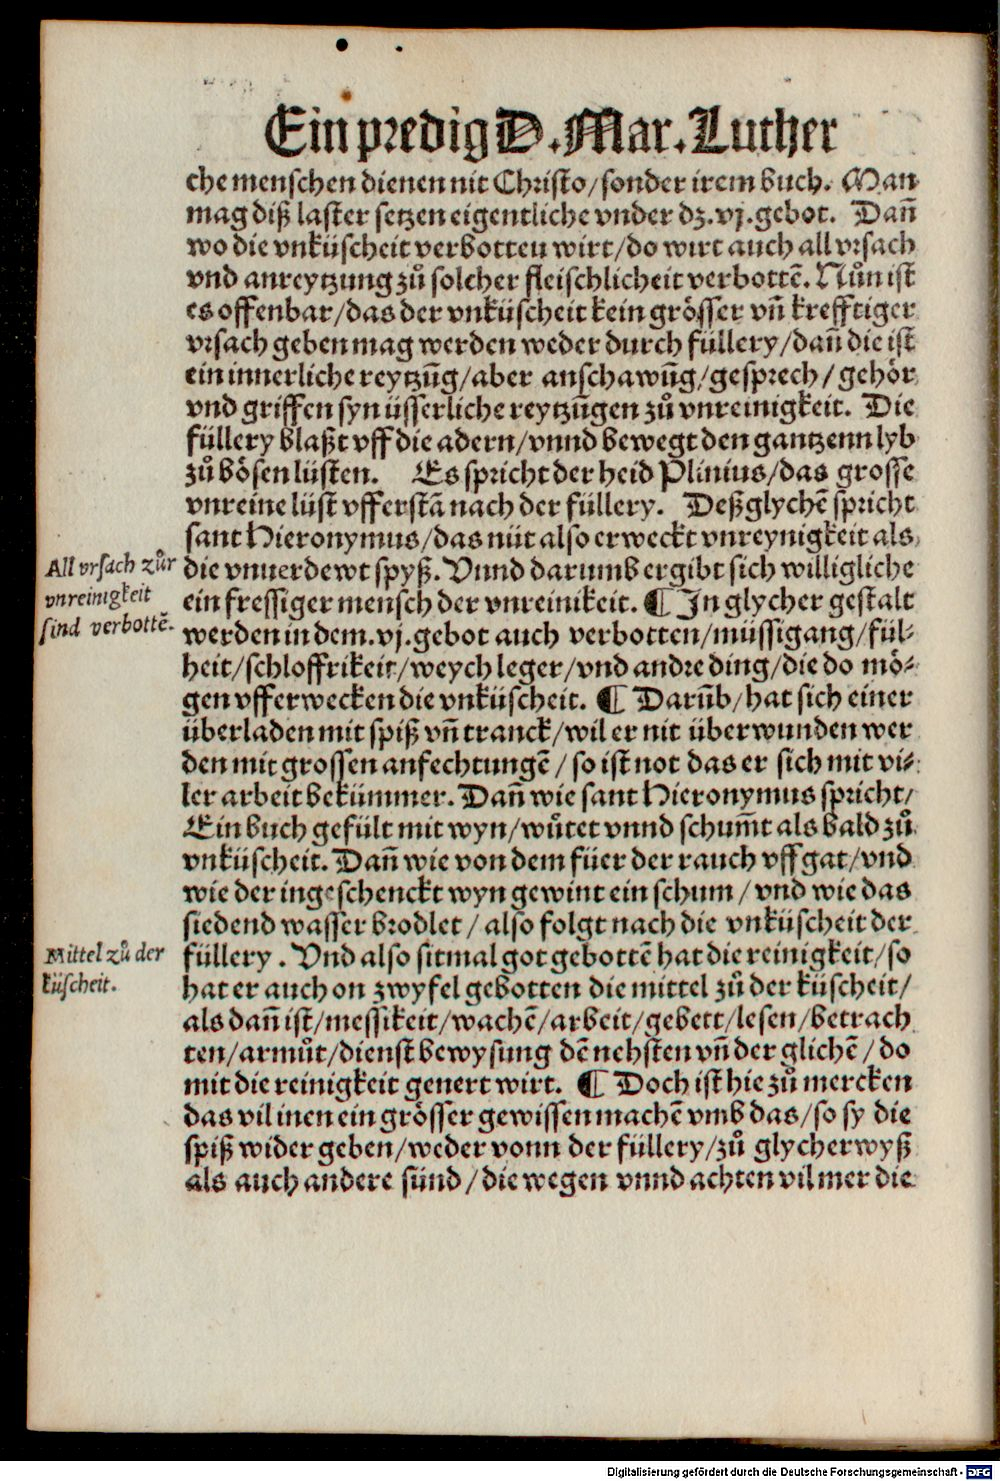 Ein predig D. Mar. Luther
che menschen dienen nit Christo/sonder irem buch. Man
mag diß laster setzen eigentliche vnder dz.vj.gebot. Dañ
wo die vnküscheit verbotten wirt/do wirt auch all vrsach
vnd anreytzung zů solcher fleischlicheit verbottẽ. Nůn ist
es offenbar/das der vnküscheit kein grösser vñ krefftiger
vrsach geben mag werden weder durch füllery/dañ die ist
ein innerliche reytzũg/aber anschawũg/gesprech/gehör
vnd griffen syn üsserliche reytzũgen zů vnreinigkeit. Die
füllery blaßt vff die adern/vnnd bewegt den gantzenn lyb
zů bösen lüsten. Es spricht der heid Plinius/das grosse
vnreine lüst vfferstã nach der füllery. Deßglychẽ spricht
sant Hieronymus/das nüt also erweckt vnreynigkeit als
All vrsach zůr
vnreinigkeit
sind verbottẽ.
die vnuerdewt spyß. Vnnd darumb ergibt sich willigliche
ein fressiger mensch der vnreinikeit. ¶ In glycher gestalt
werden in dem.vj.gebot auch verbotten/müssigang/fül-
heit/schloffrikeit/weych leger/vnd andre ding/die do mö-
gen vfferwecken die vnküscheit. ¶ Darũb/hat sich einer
überladen mit spiß vñ tranck/wil er nit überwunden wer
den mit grossen anfechtungẽ/so ist not das er sich mit vi-
ler arbeit bekümmer. Dañ wie sant Hieronymus spricht/
Ein buch gefült mit wyn/wůtet vnnd schum̃t als bald zů
vnküscheit. Dañ wie von dem füer der rauch vffgat/vnd
wie der ingeschenckt wyn gewint ein schum/vnd wie das
siedend wasser brodlet/also folgt nach die vnküscheit der
Mittel zů der
küscheit.
füllery. Vnd also sitmal got gebottẽ hat die reinigkeit/so
hat er auch on zwyfel gebotten die mittel zů der küscheit/
als dañ ist/messikeit/wachẽ/arbeit/gebett/lesen/betrach
ten/armůt/dienst bewysung dẽ nehsten vñ der glichẽ/do
mit die reinigkeit genert wirt. ¶ Doch ist hie zů mercken
das vil inen ein grösser gewissen machẽ vmb das/so sy die
spiß wider geben/weder vonn der füllery/zů glycherwyß
als auch andere sünd/die wegen vnnd achten vil mer die
Digitalisierung gefördert durch die Deutsche Forschungsgemeinschaft - DFG